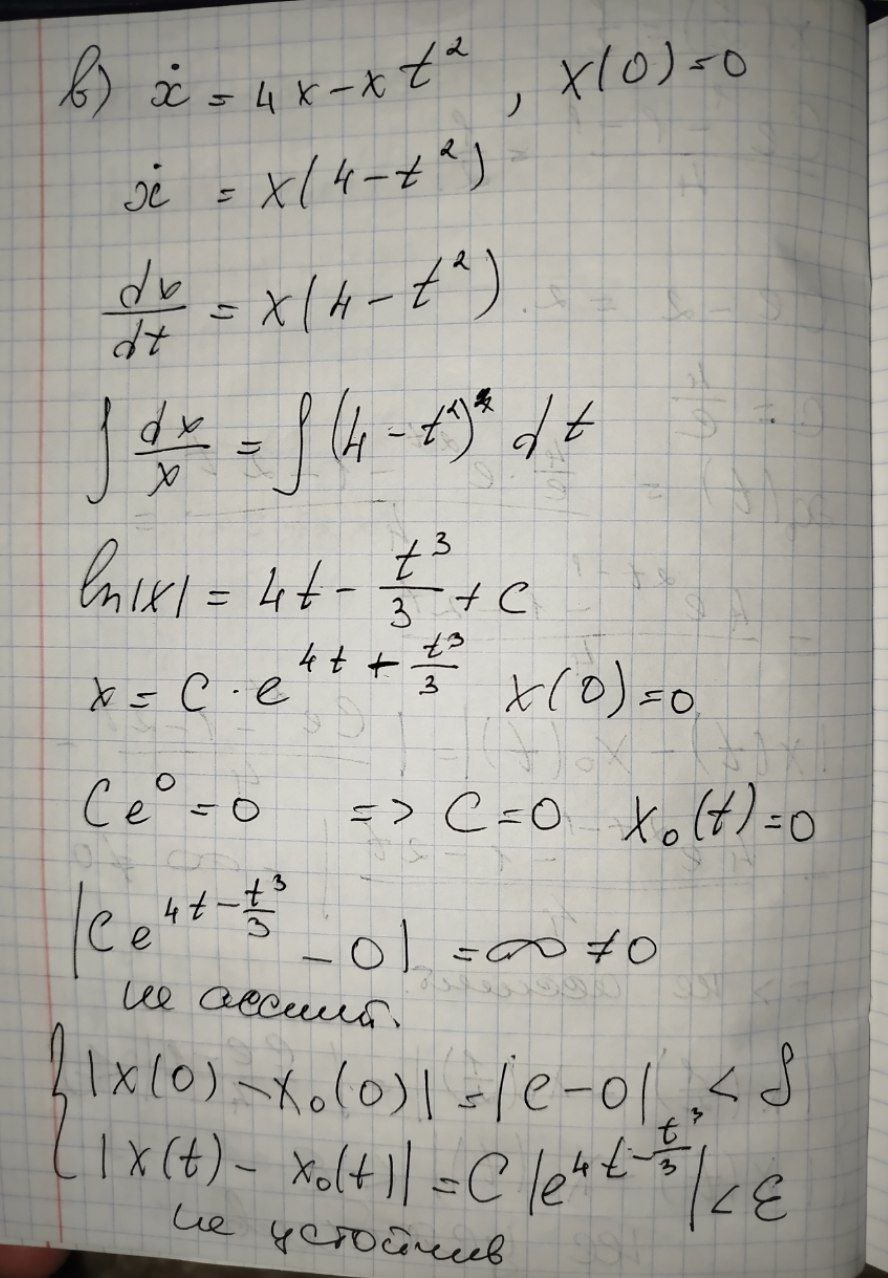 в) ẋ = 4x - xt², x(0)=0
ẋ = x(4-t²)
dx/dt = x(4-t²)
∫ dx/x = ∫(4-t²) dt
ln|x| = 4t - t³/3 + C
x = C · e^(4t + t³/3) x(0)=0
Ce⁰ = 0 => C=0 x₀(t)=0
|Ce^(4t - t³/3) - 0| = ∞ ≠ 0
не ассимп.
{ |x(0) - x₀(0)| = |C-0| < δ
|x(t) - x₀(t)| = C|e^(4t - t³/3)| < ε
не устойчив